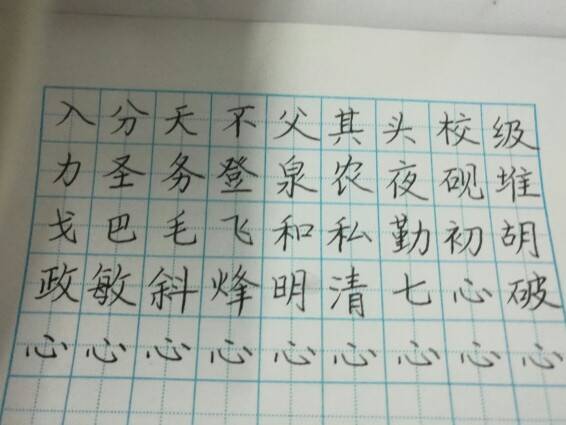 入分天不父其头校级
力圣务登泉农夜砚堆
戈巴毛飞和私勤初胡
政敏斜烽明清七心破
心心心心心心心心心